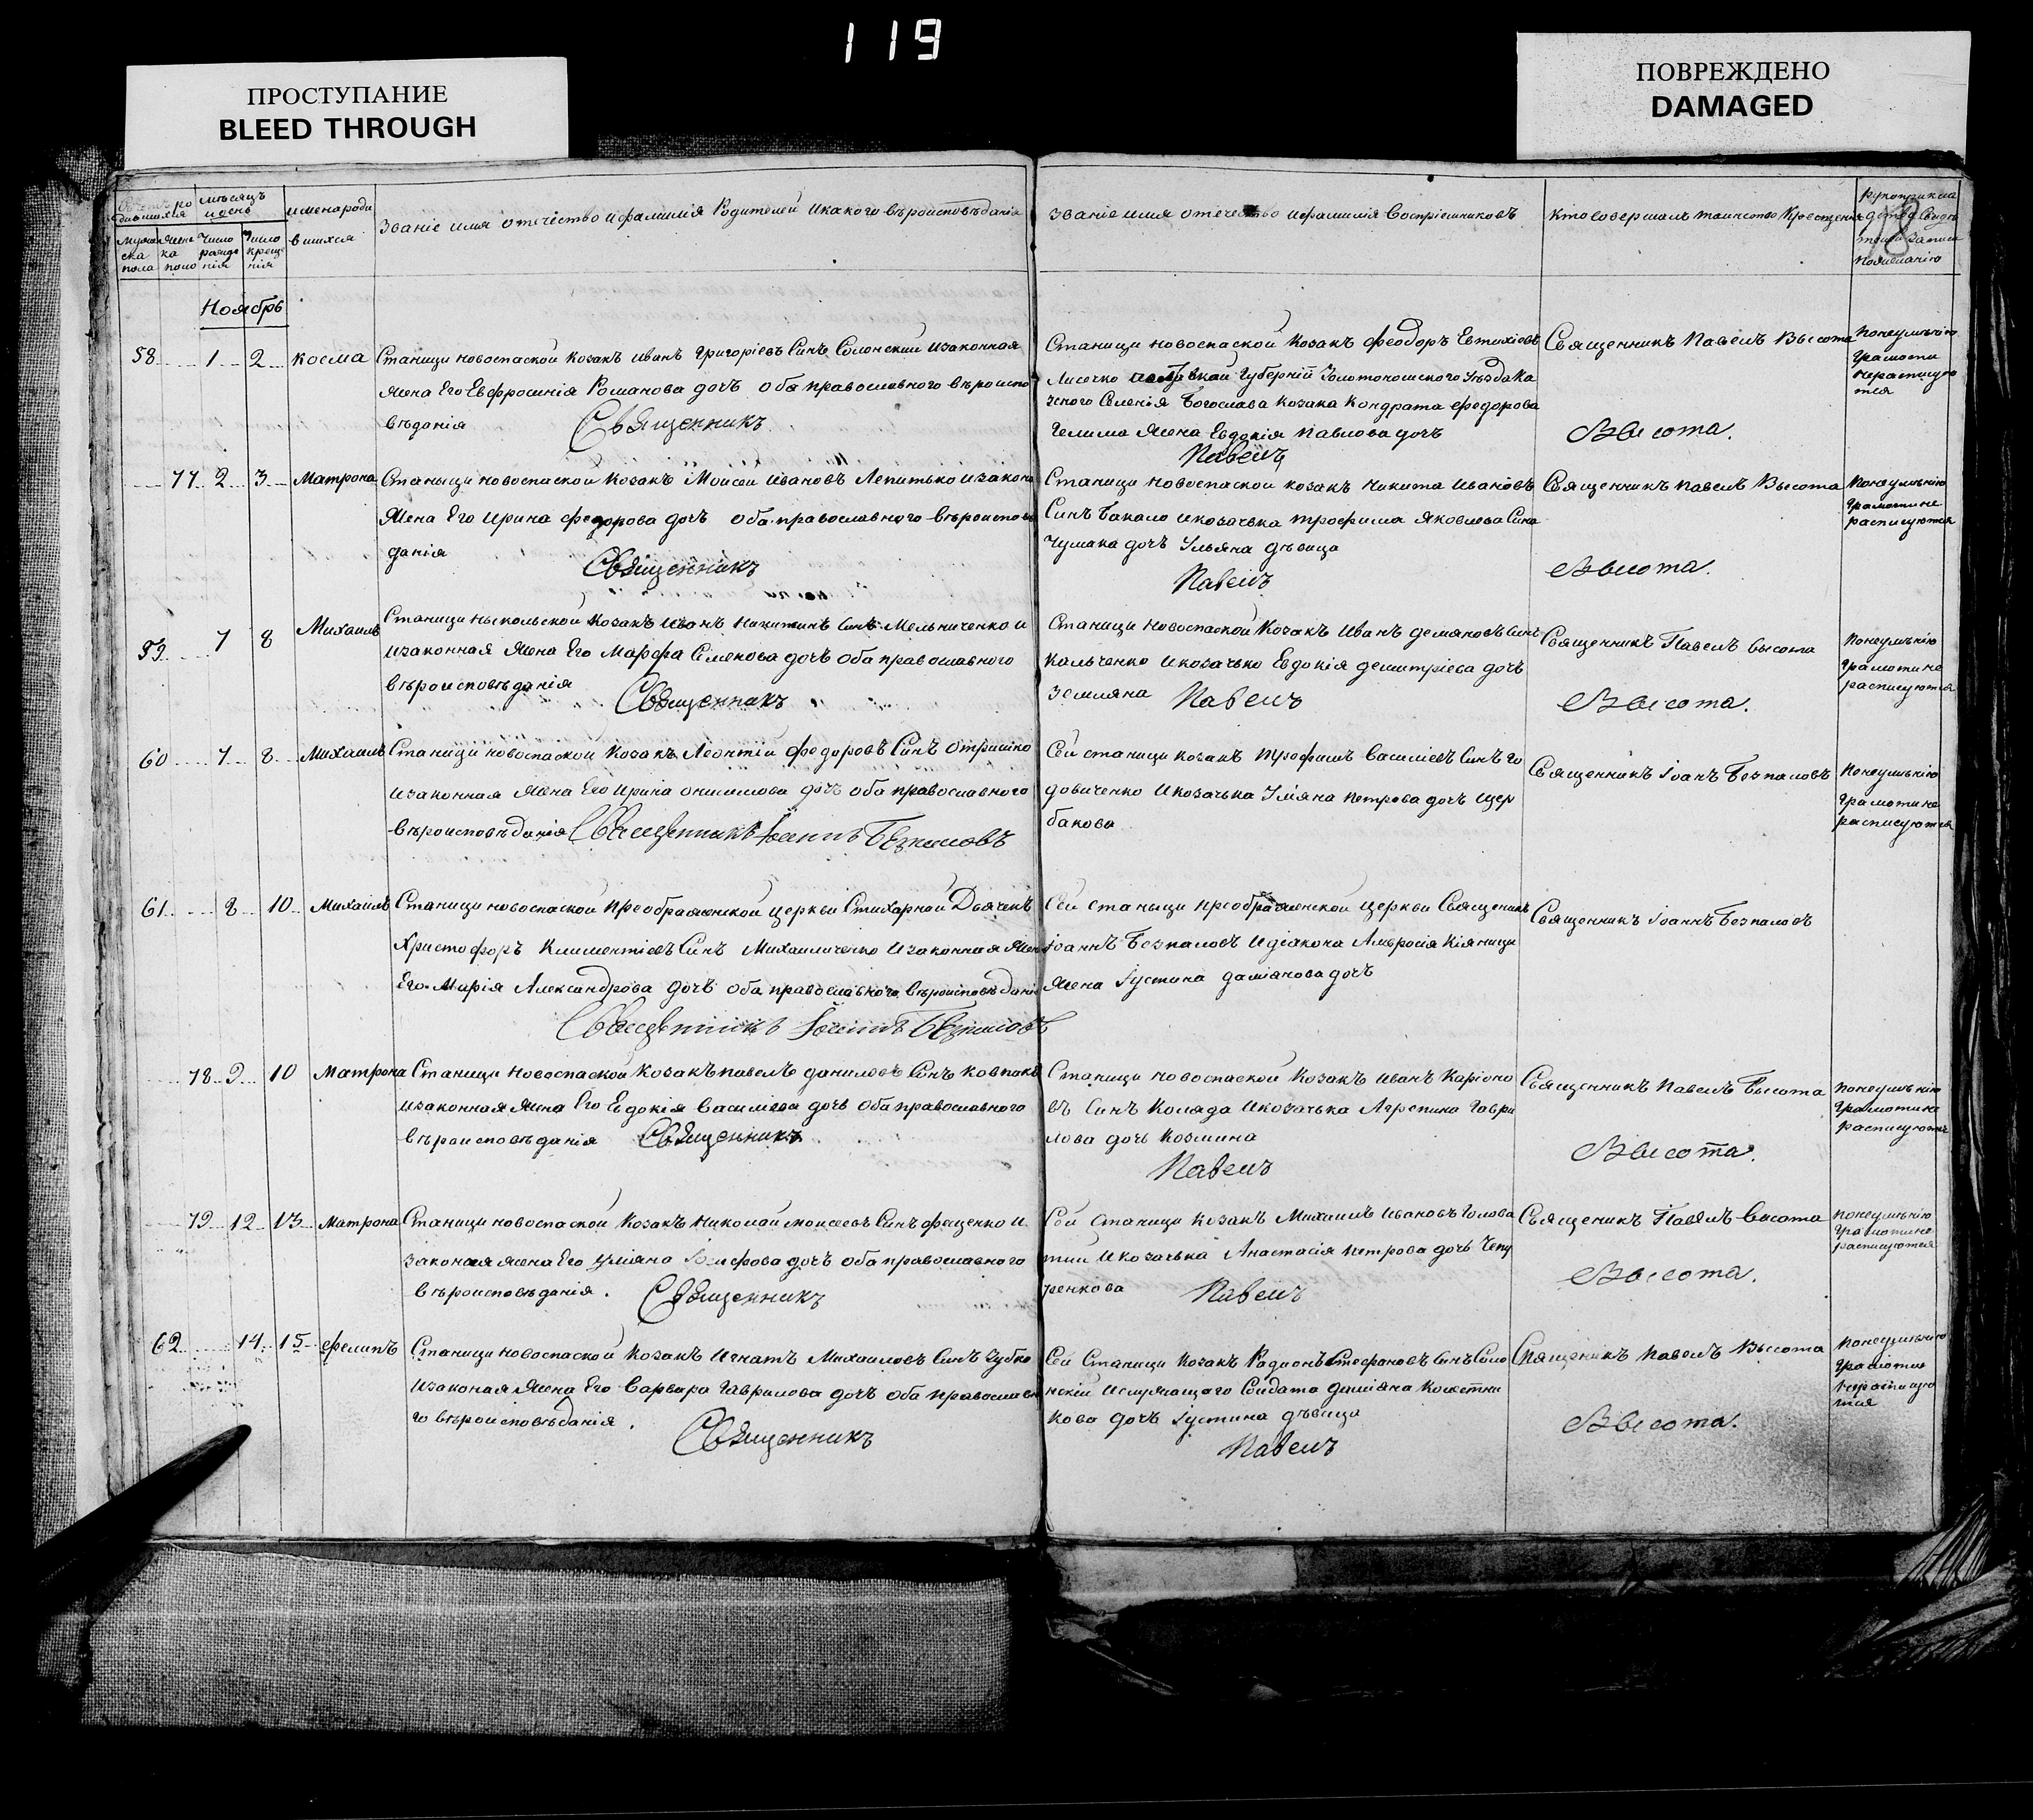 119
ПРОСТУПАНИЕ
BLEED THROUGH
ПОВРЕЖДЕНО
DAMAGED
мѣсяцъ
и день
имена роди
вшихся
Званіе имя отечіство и фамилія Родителей и какого вѣроисповѣданія
Званіе имя отечество и фамилія Воспріемниковъ
Кто совершалъ таинство Крещенія
Число рожде нія
Число креще нія
Ноябрь
58 1 2 Косма
Станици Новоспаской Козакъ Иванъ Григоріевъ Синъ Солонский и законная
жена Его Евфросинія Романова дочъ оба православного вѣроиспо
вѣданія Священникъ
Станици Новоспаской Козакъ Феодоръ Евтихіевъ
Лисечко Губерній Золотоношского Уѣзда Ка
зеного Селенія Богослава Козака Кондрата Федорова
жена Евдокія Павлова дочъ
Павелъ
Священникъ Павелъ Высота
Высота.
Понеумѣнію
грамоти
нерасписую
тся
77 2 3 Матрона
Станыци Новоспаской Козакъ Моисей Ивановъ Лепитько и закона
Жена Его Ирина Федорова дочъ оба православного вѣроиспов
данія
Священникъ
Станици Новоспаской козакъ Никита Ивановъ
Синъ Бакало и козачька Трофима Яковлева Сина
Чумака дочъ Ульяна дѣвица
Павелъ
Священникъ Павелъ Высота
Высота.
Понеумѣнію
грамоти не
расписуются
59 7 8 Михаилъ
Станици Никольской Козакъ Иванъ Никитинъ Синъ Мельниченко и
изаконная Жена Его Марфа Семенова дочъ оба православного
вѣроисповѣданія Священникъ
Станици Новоспаской Козакъ Иванъ Демяновъ Синъ
Кальченко и козачько Евдокія Демитріева дочъ
Земляна Павелъ
Священникъ Павелъ Высота
Высота.
Понеумѣнію
грамоти не
расписуются
60 7 8 Михаилъ
Станици Новоспаской Козакъ Леонтій Федоровъ Синъ Отришко
изаконная Жена Его Ирина Онисимова дочъ оба православного
вѣроисповѣданія Священникъ Іоаннъ Безпаловъ
Сей станици козакъ Трофимъ Василіевъ Синъ Го
довиченко и козачька Уліяна Петрова дочъ Щер
бакова
Священникъ Іоанъ Безпаловъ
Понеумѣнію
грамоти не
расписуются
61 8 10 Михаилъ
Станици Новоспаской Преображенской церкви Стихарной Дьячекъ
Христофоръ Климентіевъ Синъ Михаиличенко и законная Жена
Его Марія Александрова дочъ оба православного вѣроисповѣданія
Священникъ Іоаннъ Безпаловъ
Сей станыци Преображенской церкви Священикъ
Іоаннъ Безпаловъ и діакона Амвросія Кіяници
Жена Іустина Даміянова дочъ
Священникъ Іоаннъ Безпаловъ
78 9 10 Матрона
Станици Новоспаской Козакъ Павелъ Даниловъ Синъ Ковпакъ
изаконная жена Его Евдокія Василіева дочъ оба православного
вѣроисповѣданія Священникъ
Станици Новоспаской Козакъ Иванъ Каріоно
въ Синъ Коляда и козачька Агрепина Гаври
лова дочъ Козмина
Павелъ
Священникъ Павелъ Высота
Высота.
Понеумѣнію
грамоти не
расписуются
79 12 13 Матрона
Станици Новоспаской Козакъ Николай Моисеевъ Синъ Фещенко и
законая жена Его Уліяна дочъ оба православного
вѣроисповѣданія. Священникъ
Сей Станици Козакъ Михаилъ Ивановъ Голова
тий и козачька Анастасія Петрова дочъ Чепу
ренкова Павелъ
Священикъ Павелъ Висота
Высота.
Понеумѣнію
грамоти не
расписуются
62 14 15 Фелипъ
Станици Новоспаской Козакъ Игнатъ Михаиловъ Синъ Зубко
изаконая Жена Его Варвара Гаврилова дочъ оба православно
го вѣроисповѣданія.
Священникъ
Сей Станици Козакъ Радионъ Стефановъ Синъ Соло
нский и служащаго Солдата Даміяна
кова дочъ Іустина дѣвица
Павелъ
Священикъ Павелъ Высота
Высота.
Понеумѣнію
грамоти
нерасписую
тся